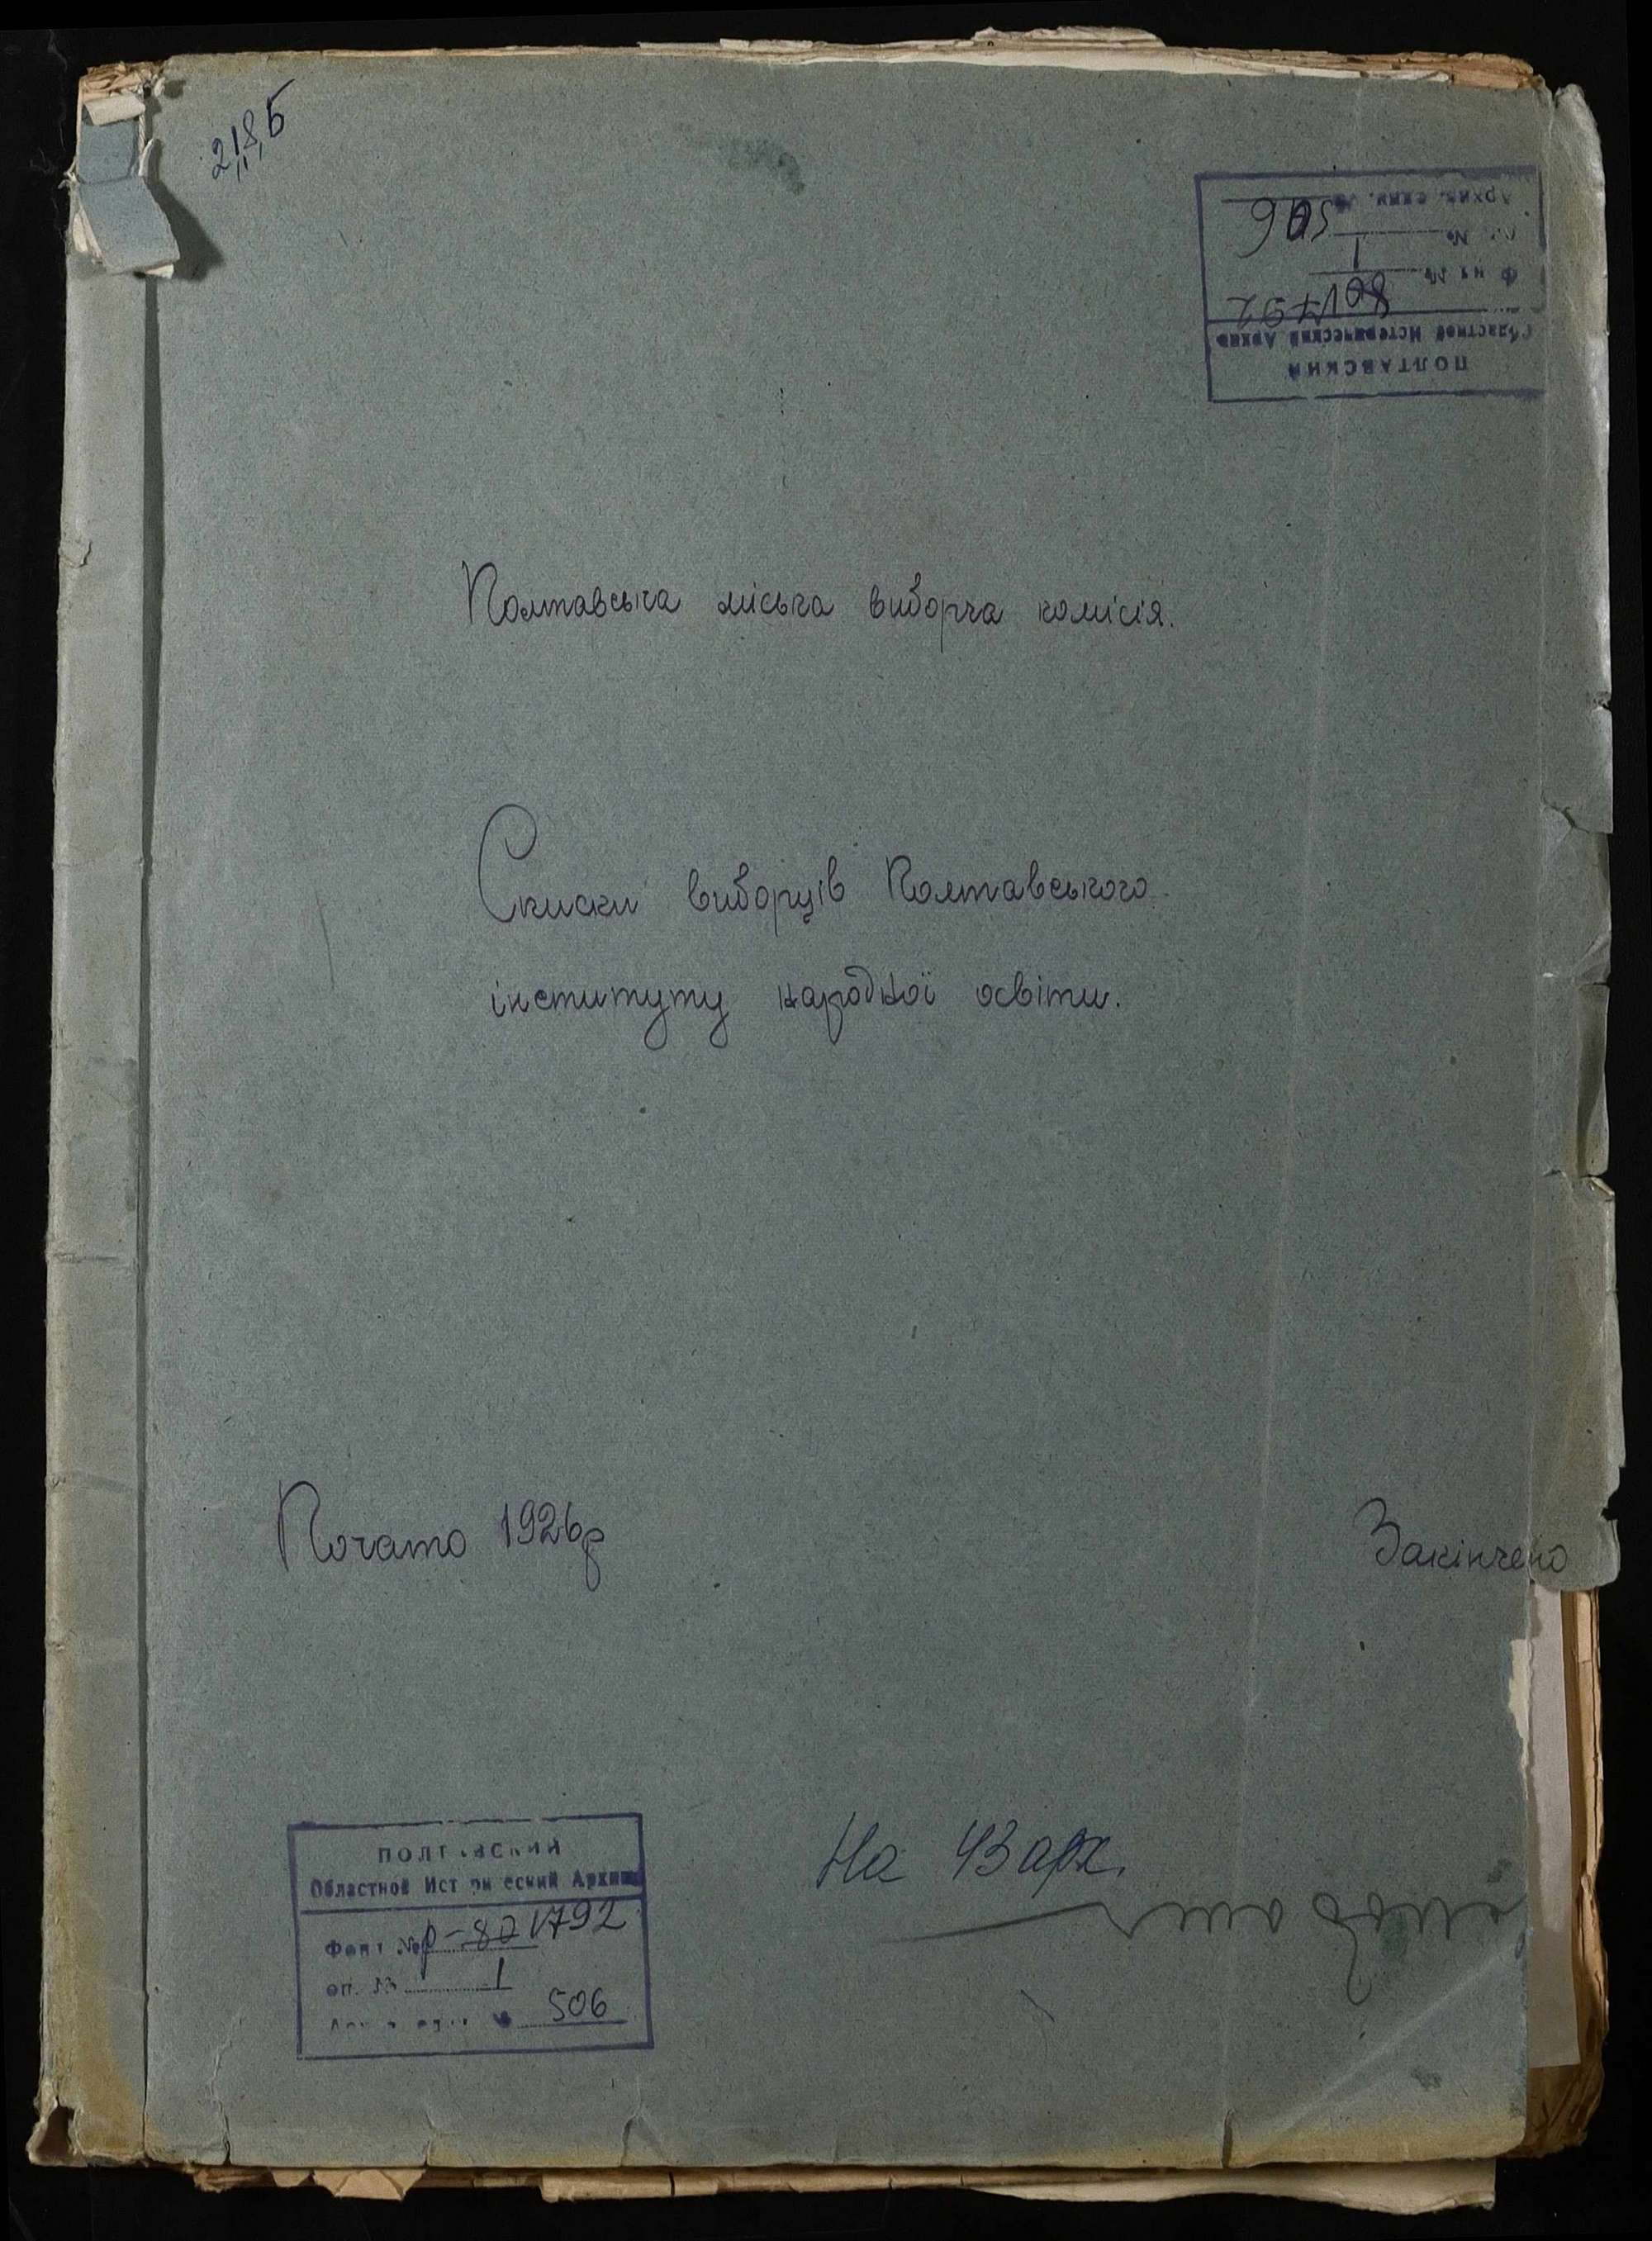 218Б
ПОЛТАВСКИЙ
Областной Исторический Архив
1
506
Полтавська міська виборча комісія.
Списки виборців Полтавського
інституту народної освіти.
Почато 1926р
Закінчено
ПОЛТАВСКИЙ
Областной Исторический Архив
Фонд № р-801792
оп. № 1
506
На 43 арк.